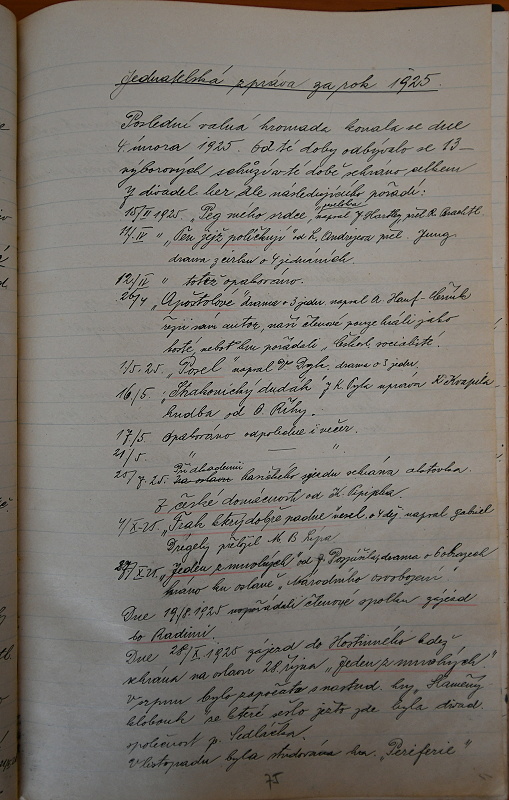 Jednatelská zpráva za rok 1925.
Poslední valná hromada konala se dne
4. února 1925. Od té doby odbývalo se 13-
výborových schůzí a v té době sehráno celkem
divadel her dle následujícího pořadí:
15/II 1925 „Peg mého srdce" veselohra napsal J. Hartley, přel.
11/IV " „Ten, jejž políčkují" od L. Andrejeva přel. Jung
drama z cirku o 4 jednáních.
12/IV " totéž opakováno.
26/4 „Apoštolové" drama o 3 jedn. napsal A.
režii sám autor, naši členové pouze hráli jako
hosté, neboť hru pořádali
1/5. 25. „Posel" napsal V. Dyk, drama o 3 jedn.
16/5. „Strakonický dudák" J. K. Tyla úprava K. Kvapila
hudba od O. Říhy.
17/5. opakováno odpoledne i večer.
21/5. " — "
25/7. 25. Při akademii hasičského sjezdu sehrána aktovka
Z české domácnosti od K. Pippicha.
4/X-25 „Frak, který dobře padne" vesel. o 4 děj. napsal Gabriel
Drégely přeložil M. B.
27/X 25 „Jeden z mnohých" od J. drama o 6 obrazech
hráno ku oslavě „Národního osvobození"
Dne 19/8. 1925 uspořádali členové spolku zájezd
do Radimi.
Dne 28/X. 1925 zájezd do Hostinného kdež
sehrána na oslavu 28. října „Jeden z mnohých"
V srpnu bylo započato s nastud. hry „Slaměný
klobouk" se které sešlo ježto zde byla divad.
společnost p. Sedláčka.
V listopadu byla studována hra „Periferie"
75